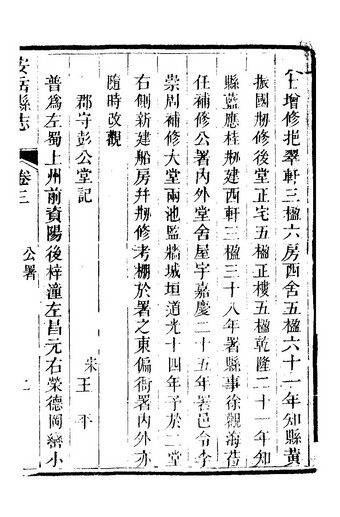 任增修挹翠軒三楹六房西舍五楹六十一年知縣黃
振國剏修後堂正宅五楹正樓五楹乾隆二十一年知
縣藍應桂剏建西軒三楹三十八年署縣事徐觀海蒞
任補修公署內外堂舍屋宇嘉慶二十五年署邑令李
崇周補修大堂兩池監牆城垣道光十四年予於二堂
右側新建船房幷剏修考棚於署之東偏衙署內外亦
隨時改觀
郡守彭公堂記
宋王平
普為左蜀上州前資陽後梓潼左昌元右榮德岡巒小
安岳縣志
卷三
公署
二